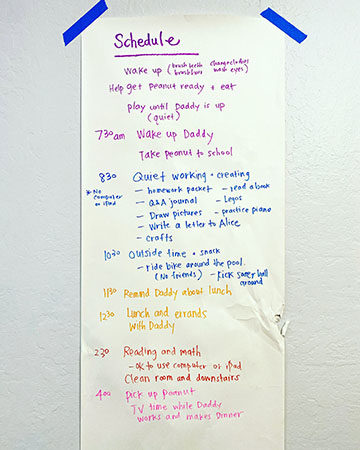 Schedule
Wake up (brush teeth change clothes
brush hair wash eyes)
Help get Peanut ready + eat
Play until Daddy is up
(quiet)
730am Wake up Daddy
Take Peanut to school
830 Quiet working + creating
* No computer or iPad
- homework packet - read a book
- Q&A journal - Legos
- Draw pictures - practice piano
- Write a letter to Alice
- Crafts
1030 Outside time + snack
- ride bike around the pool.
(No friends) - kick soccer ball
around
1130 Remind Daddy about lunch
1230 Lunch and errands
with Daddy
230 Reading and math
- OK to use computer or iPad
Clean room and downstairs
400 Pick up Peanut
TV time while Daddy
works and makes Dinner